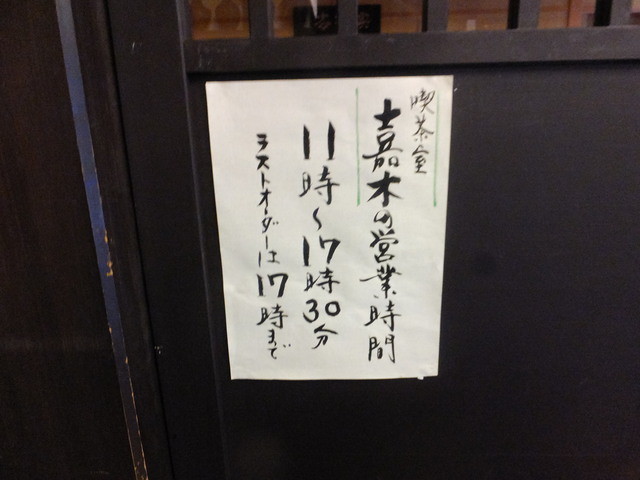 喫茶室
嘉木の営業時間
11時~17時30分
ラストオーダーは17時まで